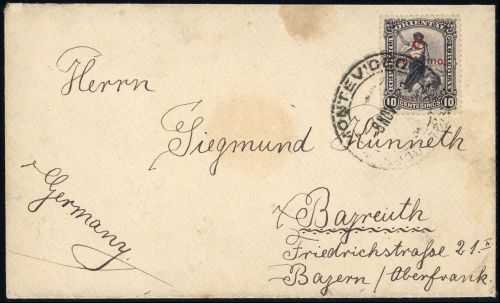 ORIENTAL
10 CENTESIMOS 10
MONTEVIDEO
NOV
Herrn
Siegmund Künneth
Germany.
Bayreuth
Friedrichstraße 21.II
Bayern / Oberfrank.